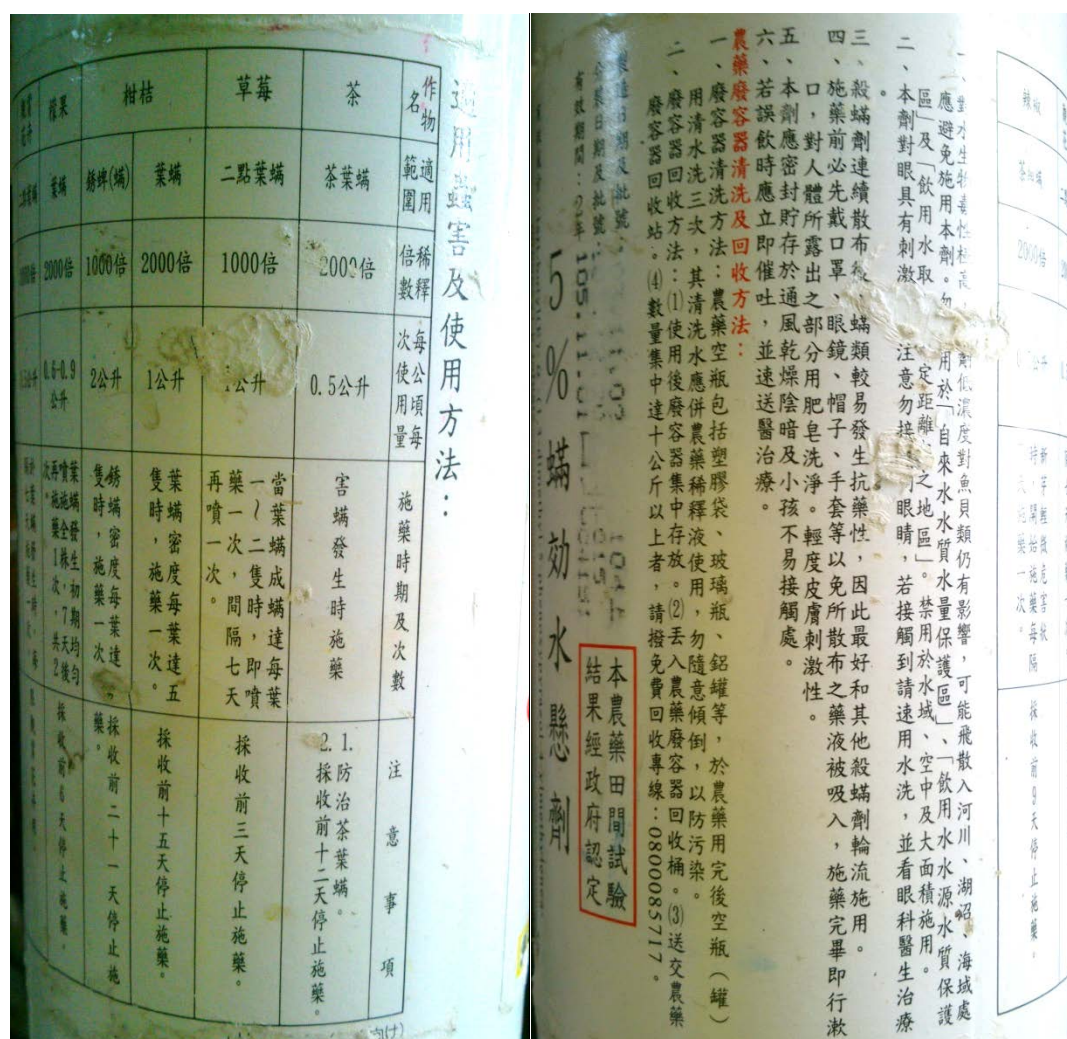 適用蟲害及使用方法：
作物
名
適用
範圍
稀釋
倍數
每公頃每
次使用量
施藥時期及次數
注意事項
茶
茶葉螨
2000倍
0.5公升
害螨發生時施藥
1.防治茶葉螨。
2.採收前十二天停止施藥。
草莓
二點葉螨
1000倍
1公升
當葉螨成螨達每葉
一～二隻時，即噴
藥一次，間隔七天
再噴一次。
採收前三天停止施藥。
柑桔
葉螨
2000倍
1公升
葉螨密度每葉達五
隻時，施藥一次。
採收前十五天停止施藥。
銹蜱(螨)
1000倍
2公升
銹螨密度每葉達
隻時，施藥一次
採收前二十一天停止施
藥。
葉螨
2000倍
0.6-0.9
公升
葉螨發生初期均勻
噴施全株，7天後
再施藥1次，共2
次。
採收前6天停止施藥。
辣椒
2000倍
採收前9天停止施藥。
一、對水生物毒性極高，劑低濃度對魚貝類仍有影響，可能飛散入河川、湖沼、海域處
應避免施用本劑。勿用於「自來水水質水量保護區」、「飲用水水源水質保護
區」及「飲用水取定距離之地區」。禁用於水域、空中及大面積施用。
二、本劑對眼具有刺激注意勿接眼睛，若接觸到請速用水洗，並看眼科醫生治療
。
三、殺螨劑連續散布後，螨類較易發生抗藥性，因此最好和其他殺螨劑輪流施用。
四、施藥前必先戴口罩、眼鏡、帽子、手套等以免所散布之藥液被吸入，施藥完畢即行漱
口，對人體所露出之部分用肥皂洗淨。輕度皮膚刺激性。
五、本劑應密封貯存於通風乾燥陰暗及小孩不易接觸處。
六、若誤飲時應立即催吐，並速送醫治療。
農藥廢容器清洗及回收方法：
一、廢容器清洗方法：農藥空瓶包括塑膠袋、玻璃瓶、鋁罐等，於農藥用完後空瓶（罐）
用清水洗三次，其清洗水應併農藥稀釋液使用，勿隨意傾倒，以防污染。
二、廢容器回收方法：⑴使用後廢容器集中存放。⑵丟入農藥廢容器回收桶。⑶送交農藥
廢容器回收站。⑷數量集中達十公斤以上者，請撥免費回收專線：0800085717。
本農藥田間試驗
結果經政府認定
有效期間：
5%
螨効水懸劑